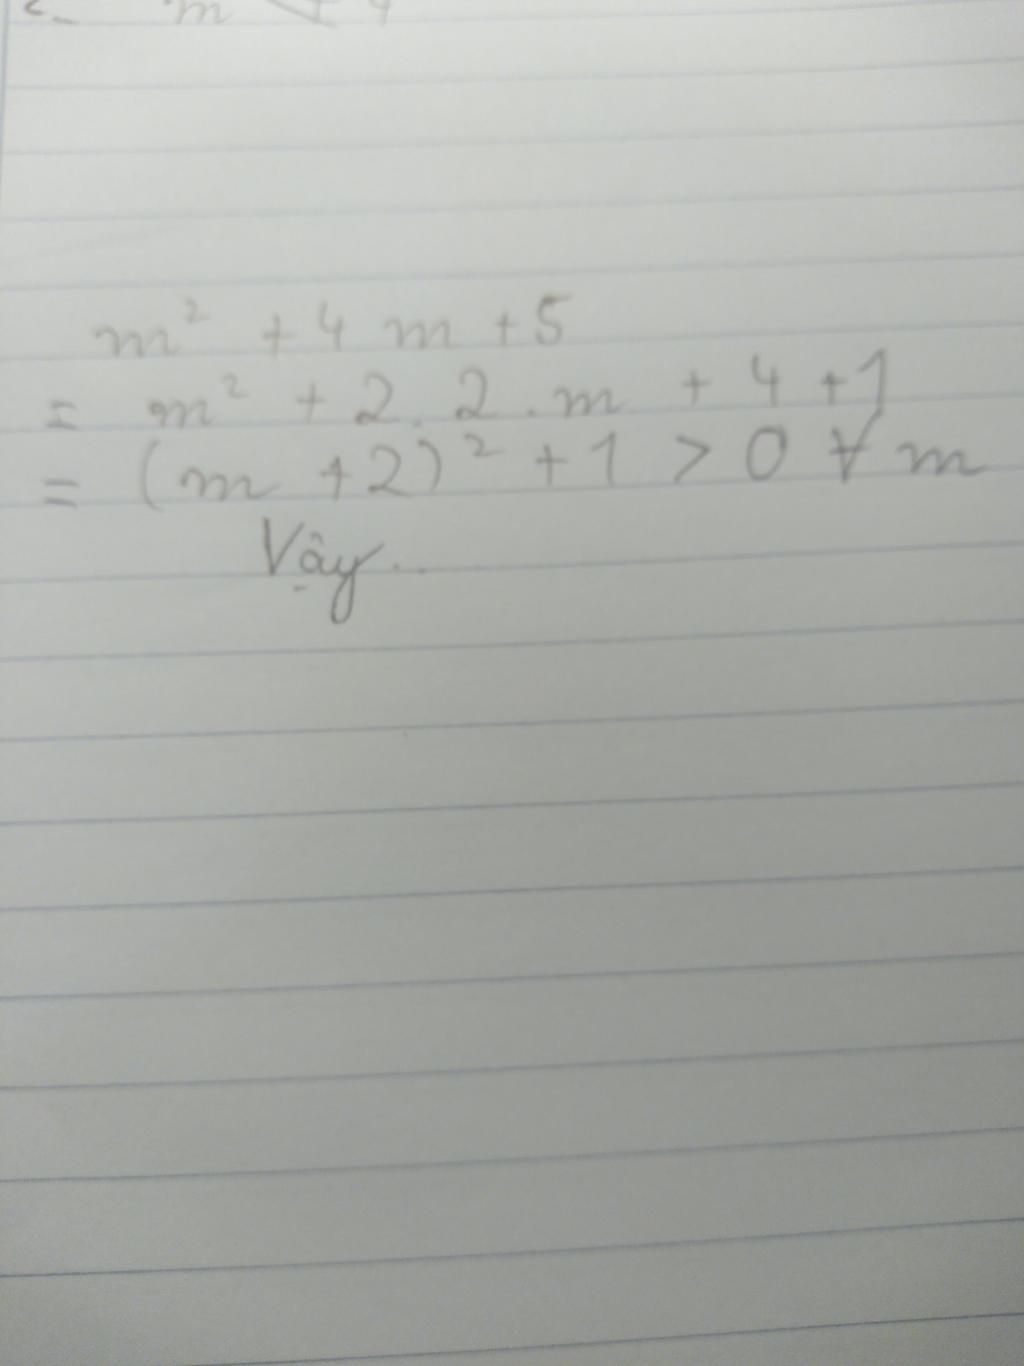 m² + 4 m + 5
= m² + 2 . 2 . m + 4 + 1
= (m + 2)² + 1 > 0 ∀ m
Vậy...